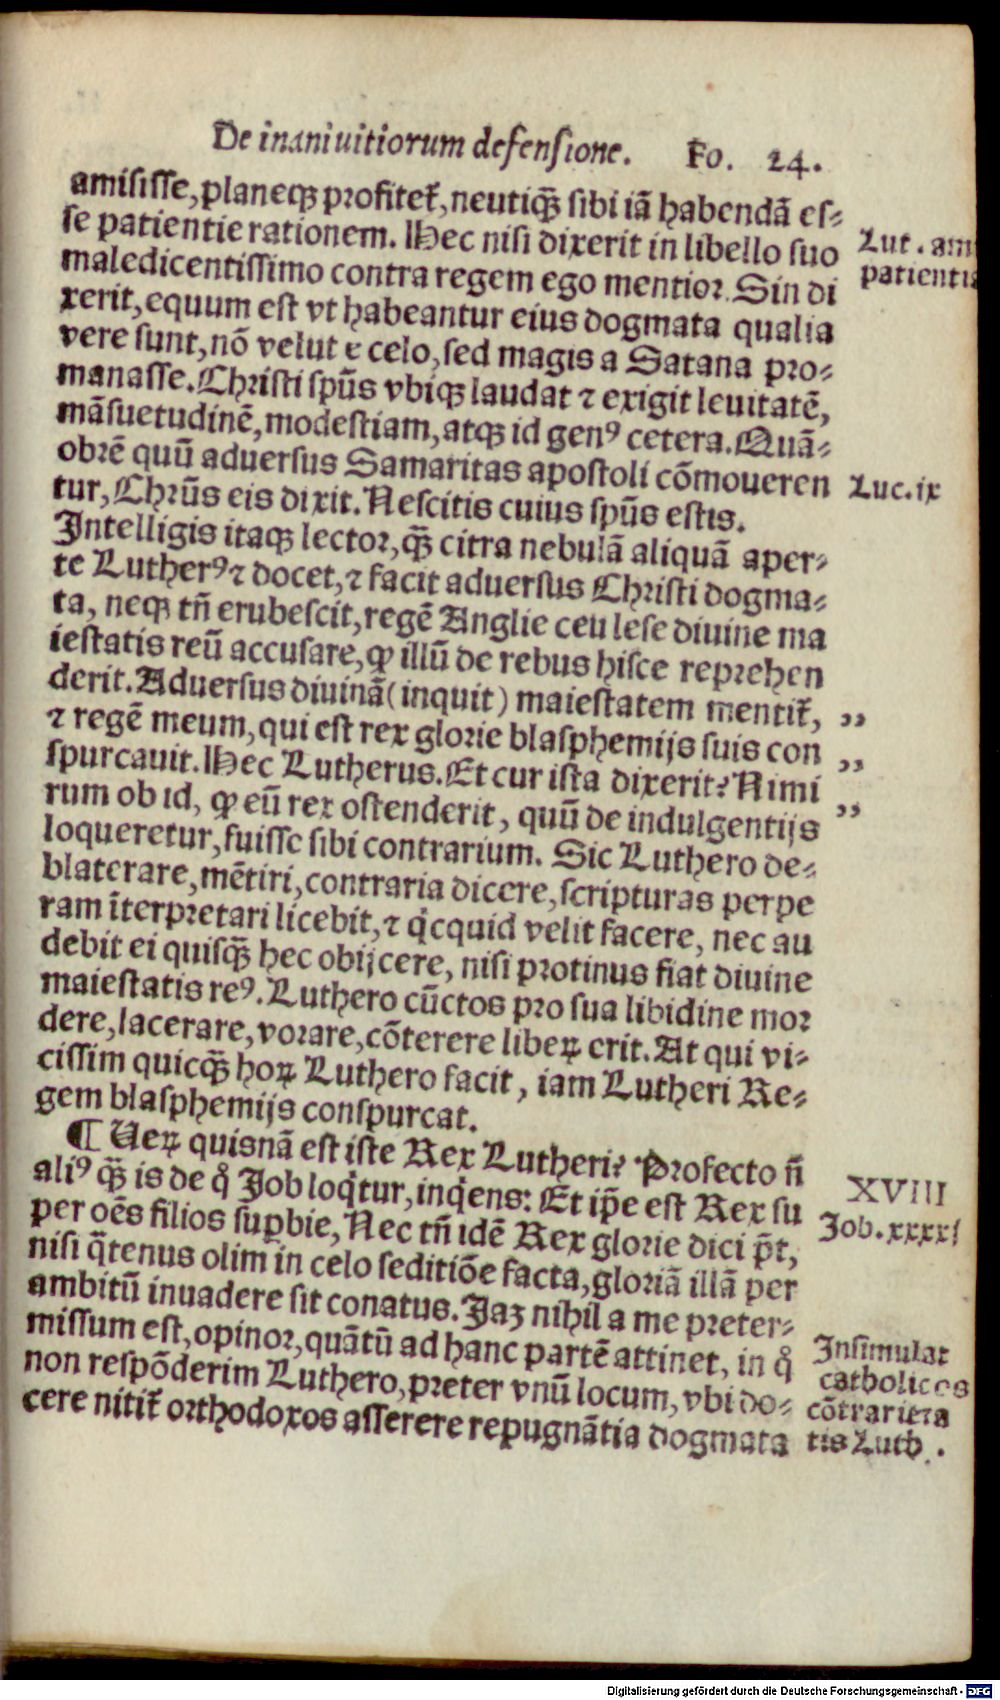 De inani uitiorum defensione. Fo. 24.
amisisse, planeqꝫ profitet᷑, neutiq̃ꝫ sibi iã habendã es⸗
se patientie rationem. Hec nisi dixerit in libello suo
maledicentissimo contra regem ego mentior. Sin di
xerit, equum est vt habeantur eius dogmata qualia
vere sunt, nõ velut e celo, sed magis a Satana pro⸗
manasse. Christi spũs vbiqꝫ laudat ⁊ exigit leuitatẽ,
mãsuetudinẽ, modestiam, atqꝫ id genꝰ cetera. Quã⸗
obrẽ quũ aduersus Samaritas apostoli cõmoueren
tur, Chrũs eis dixit. Nescitis cuius spũs estis.
Intelligis itaqꝫ lector, q̃ꝫ citra nebulã aliquã aper⸗
te Lutherꝰ ⁊ docet, ⁊ facit aduersus Christi dogma⸗
ta, neqꝫ tñ erubescit, regẽ Anglie ceu lese diuine ma
iestatis reũ accusare, ꝙ illũ de rebus hisce reprehen
derit. Aduersus diuinã (inquit) maiestatem mentit᷑,
⁊ regẽ meum, qui est rex glorie blasphemijs suis con
spurcauit. Hec Lutherus. Et cur ista dixerit? Nimi
rum ob id, ꝙ eũ rex ostenderit, quũ de indulgentijs
loqueretur, fuisse sibi contrarium. Sic Luthero de⸗
blaterare, mẽtiri, contraria dicere, scripturas perpe
ram ĩterpretari licebit, ⁊ qͥcquid velit facere, nec au
debit ei quisq̃ꝫ hec obijcere, nisi protinus fiat diuine
maiestatis reꝰ. Luthero cũctos pro sua libidine mor
dere, lacerare, vorare, cõterere libeꝝ erit. At qui vi⸗
cissim quicq̃ꝫ hoꝝ Luthero facit, iam Lutheri Re⸗
gem blasphemijs conspurcat.
¶ Ueꝝ quisnã est iste Rex Lutheri? Profecto ñ
aliꝰ q̃ꝫ is de qͦ Job loqͥtur, inqͥens: Et ip̃e est Rex su
per oẽs filios suꝑbie, Nec tñ idẽ Rex glorie dici p̃t,
nisi q̃tenus olim in celo seditiõe facta, gloriã illã per
ambitũ inuadere sit conatus. Jaꝫ nihil a me preter⸗
missum est, opinor, quãtũ ad hanc partẽ attinet, in qͦ
non respõderim Luthero, preter vnũ locum, vbi do⸗
cere nitit᷑ orthodoxos asserere repugnãtia dogmata
Lut. am
patientia
Luc. ix
,,
,,
,,
XVIII
Job. xxxxi
Insimulat
catholicos
cõtrarieta
tis Luth.
Digitalisierung gefördert durch die Deutsche Forschungsgemeinschaft - DFG